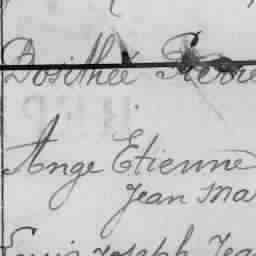 Dosithée Pierre
Ange Etienne
Jean Ma
Louis Joseph Jea